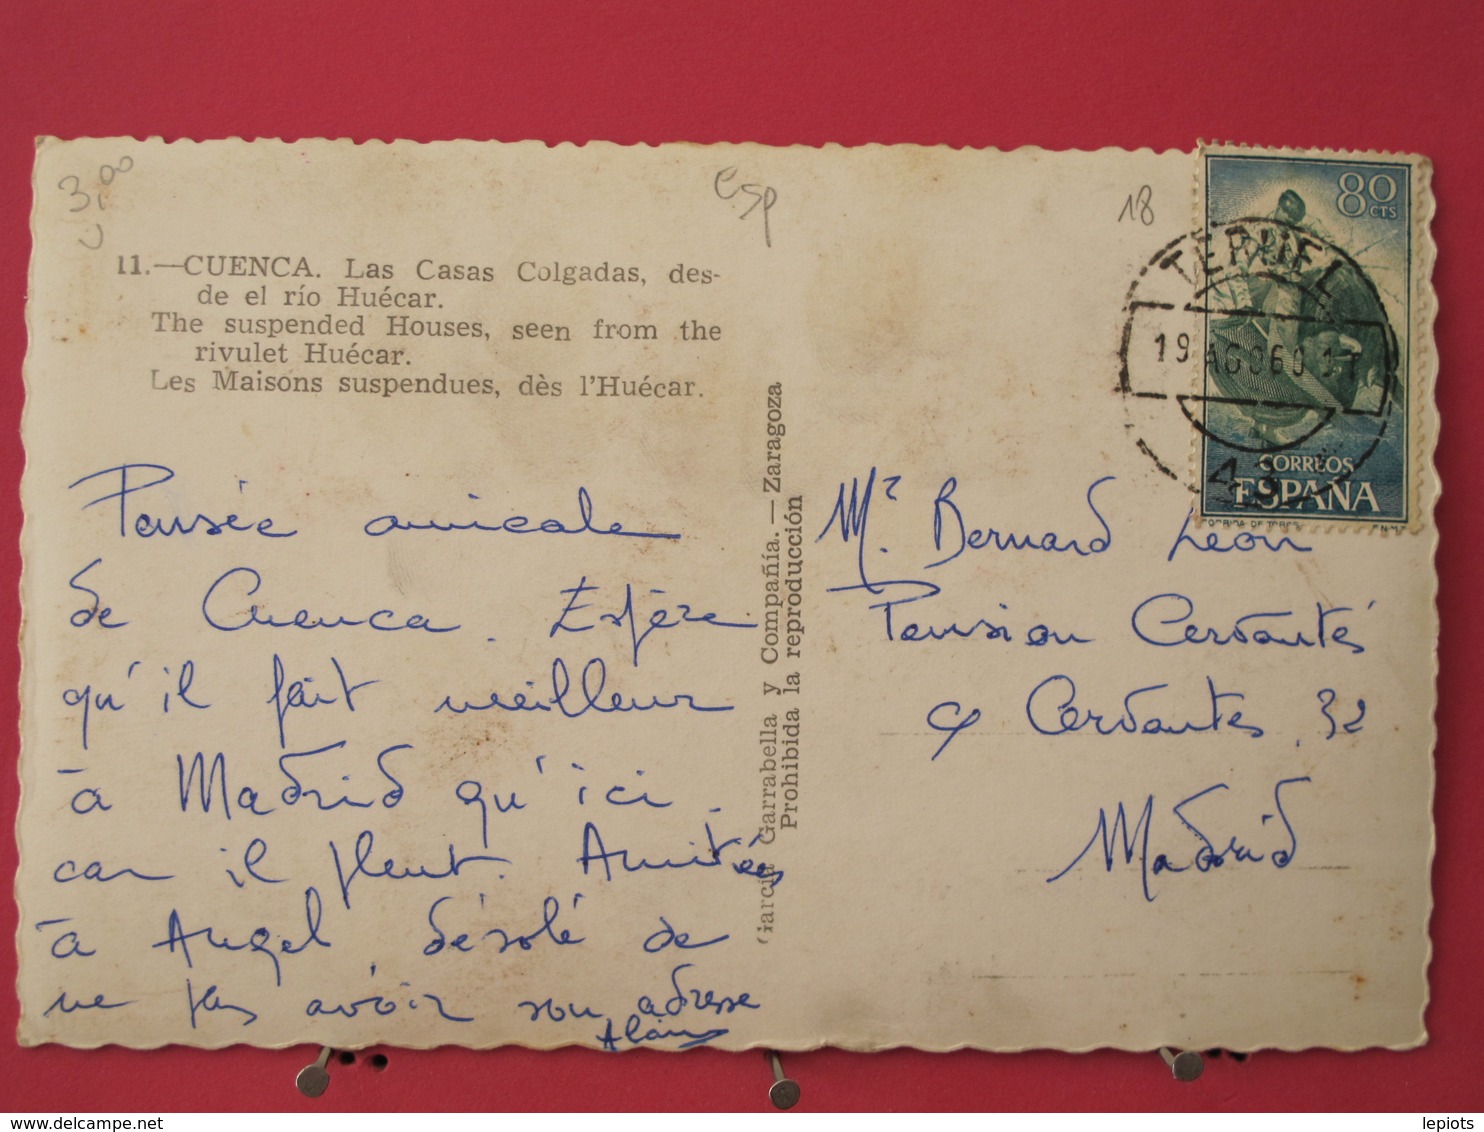 3,00
esp
18
11.—CUENCA. Las Casas Colgadas, des-
de el río Huécar.
The suspended Houses, seen from the
rivulet Huécar.
Les Maisons suspendues, dès l'Huécar.
80
CTS
TERUEL
19 AGO60
CORREOS
ESPAÑA
García Garrabella y Compañía.—Zaragoza
Prohibida la reproducción
Pensée amicale
de Cuenca. Espère
qu'il fait meilleur
à Madrid qu'ici.
car il pleut. Amitiés
à Angel, désolé de
ne pas avoir son adresse
Alain
Mr. Bernard Leon
Pension Cervantés
Cervantes, 32
Madrid
lepiots